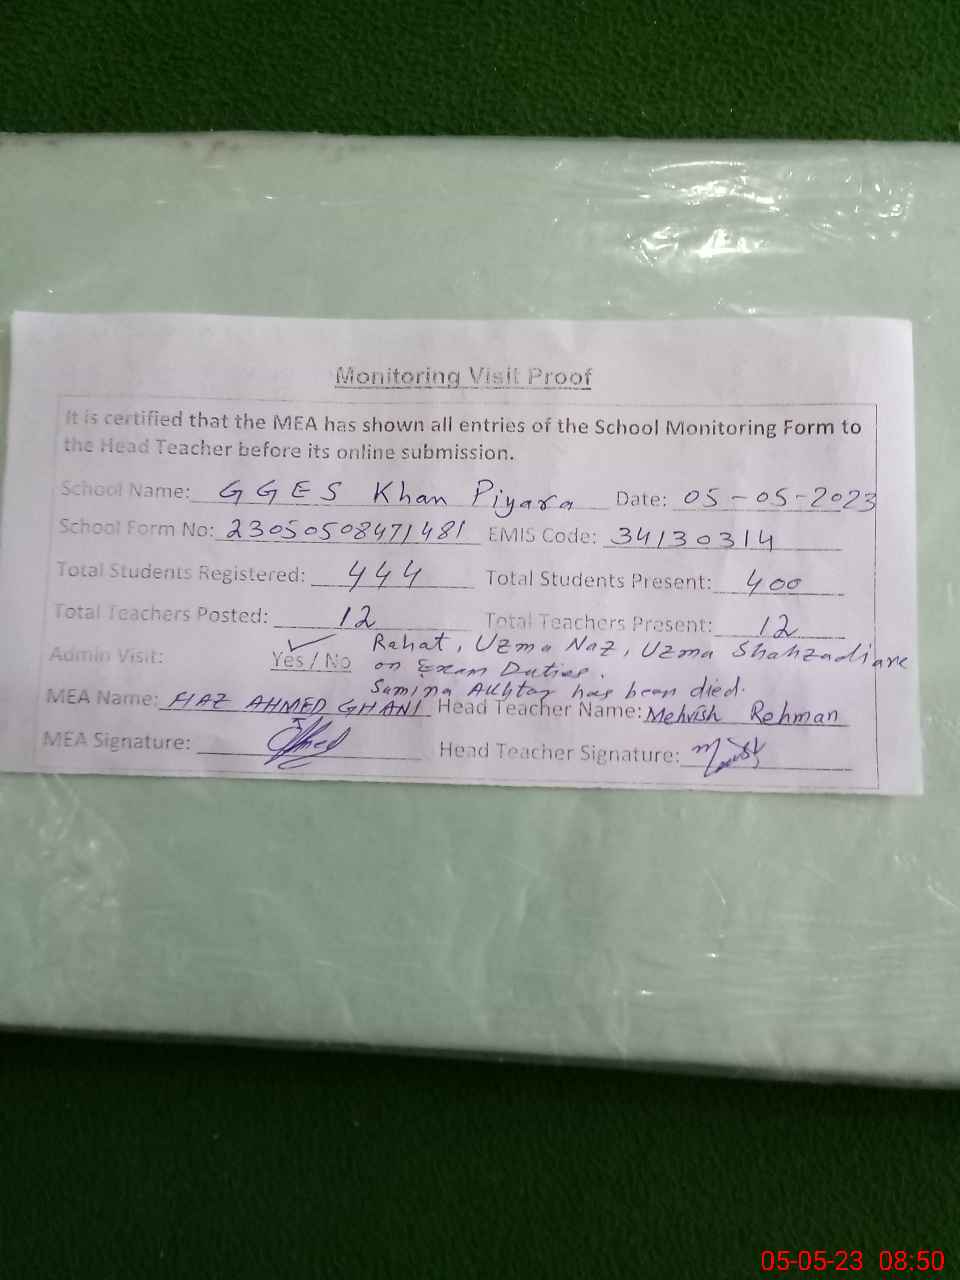 Monitoring Visit Proof
It is certified that the MEA has shown all entries of the School Monitoring Form to
the Head Teacher before its online submission.
School Name: GGES Khan Piyara Date: 05-05-2023
School Form No: 23050508471481 EMIS Code: 34130314
Total Students Registered: 444 Total Students Present: 400
Total Teachers Posted: 12 Total Teachers Present: 12
Rahat, Uzma Naz, Uzma Shahzadi are
Admin Visit: Yes / No on Exam Duties.
Samina Akhtar has been died.
MEA Name: FIAZ AHMED GHANI Head Teacher Name: Mehvish Rehman
MEA Signature: Head Teacher Signature:
05-05-23 08:50